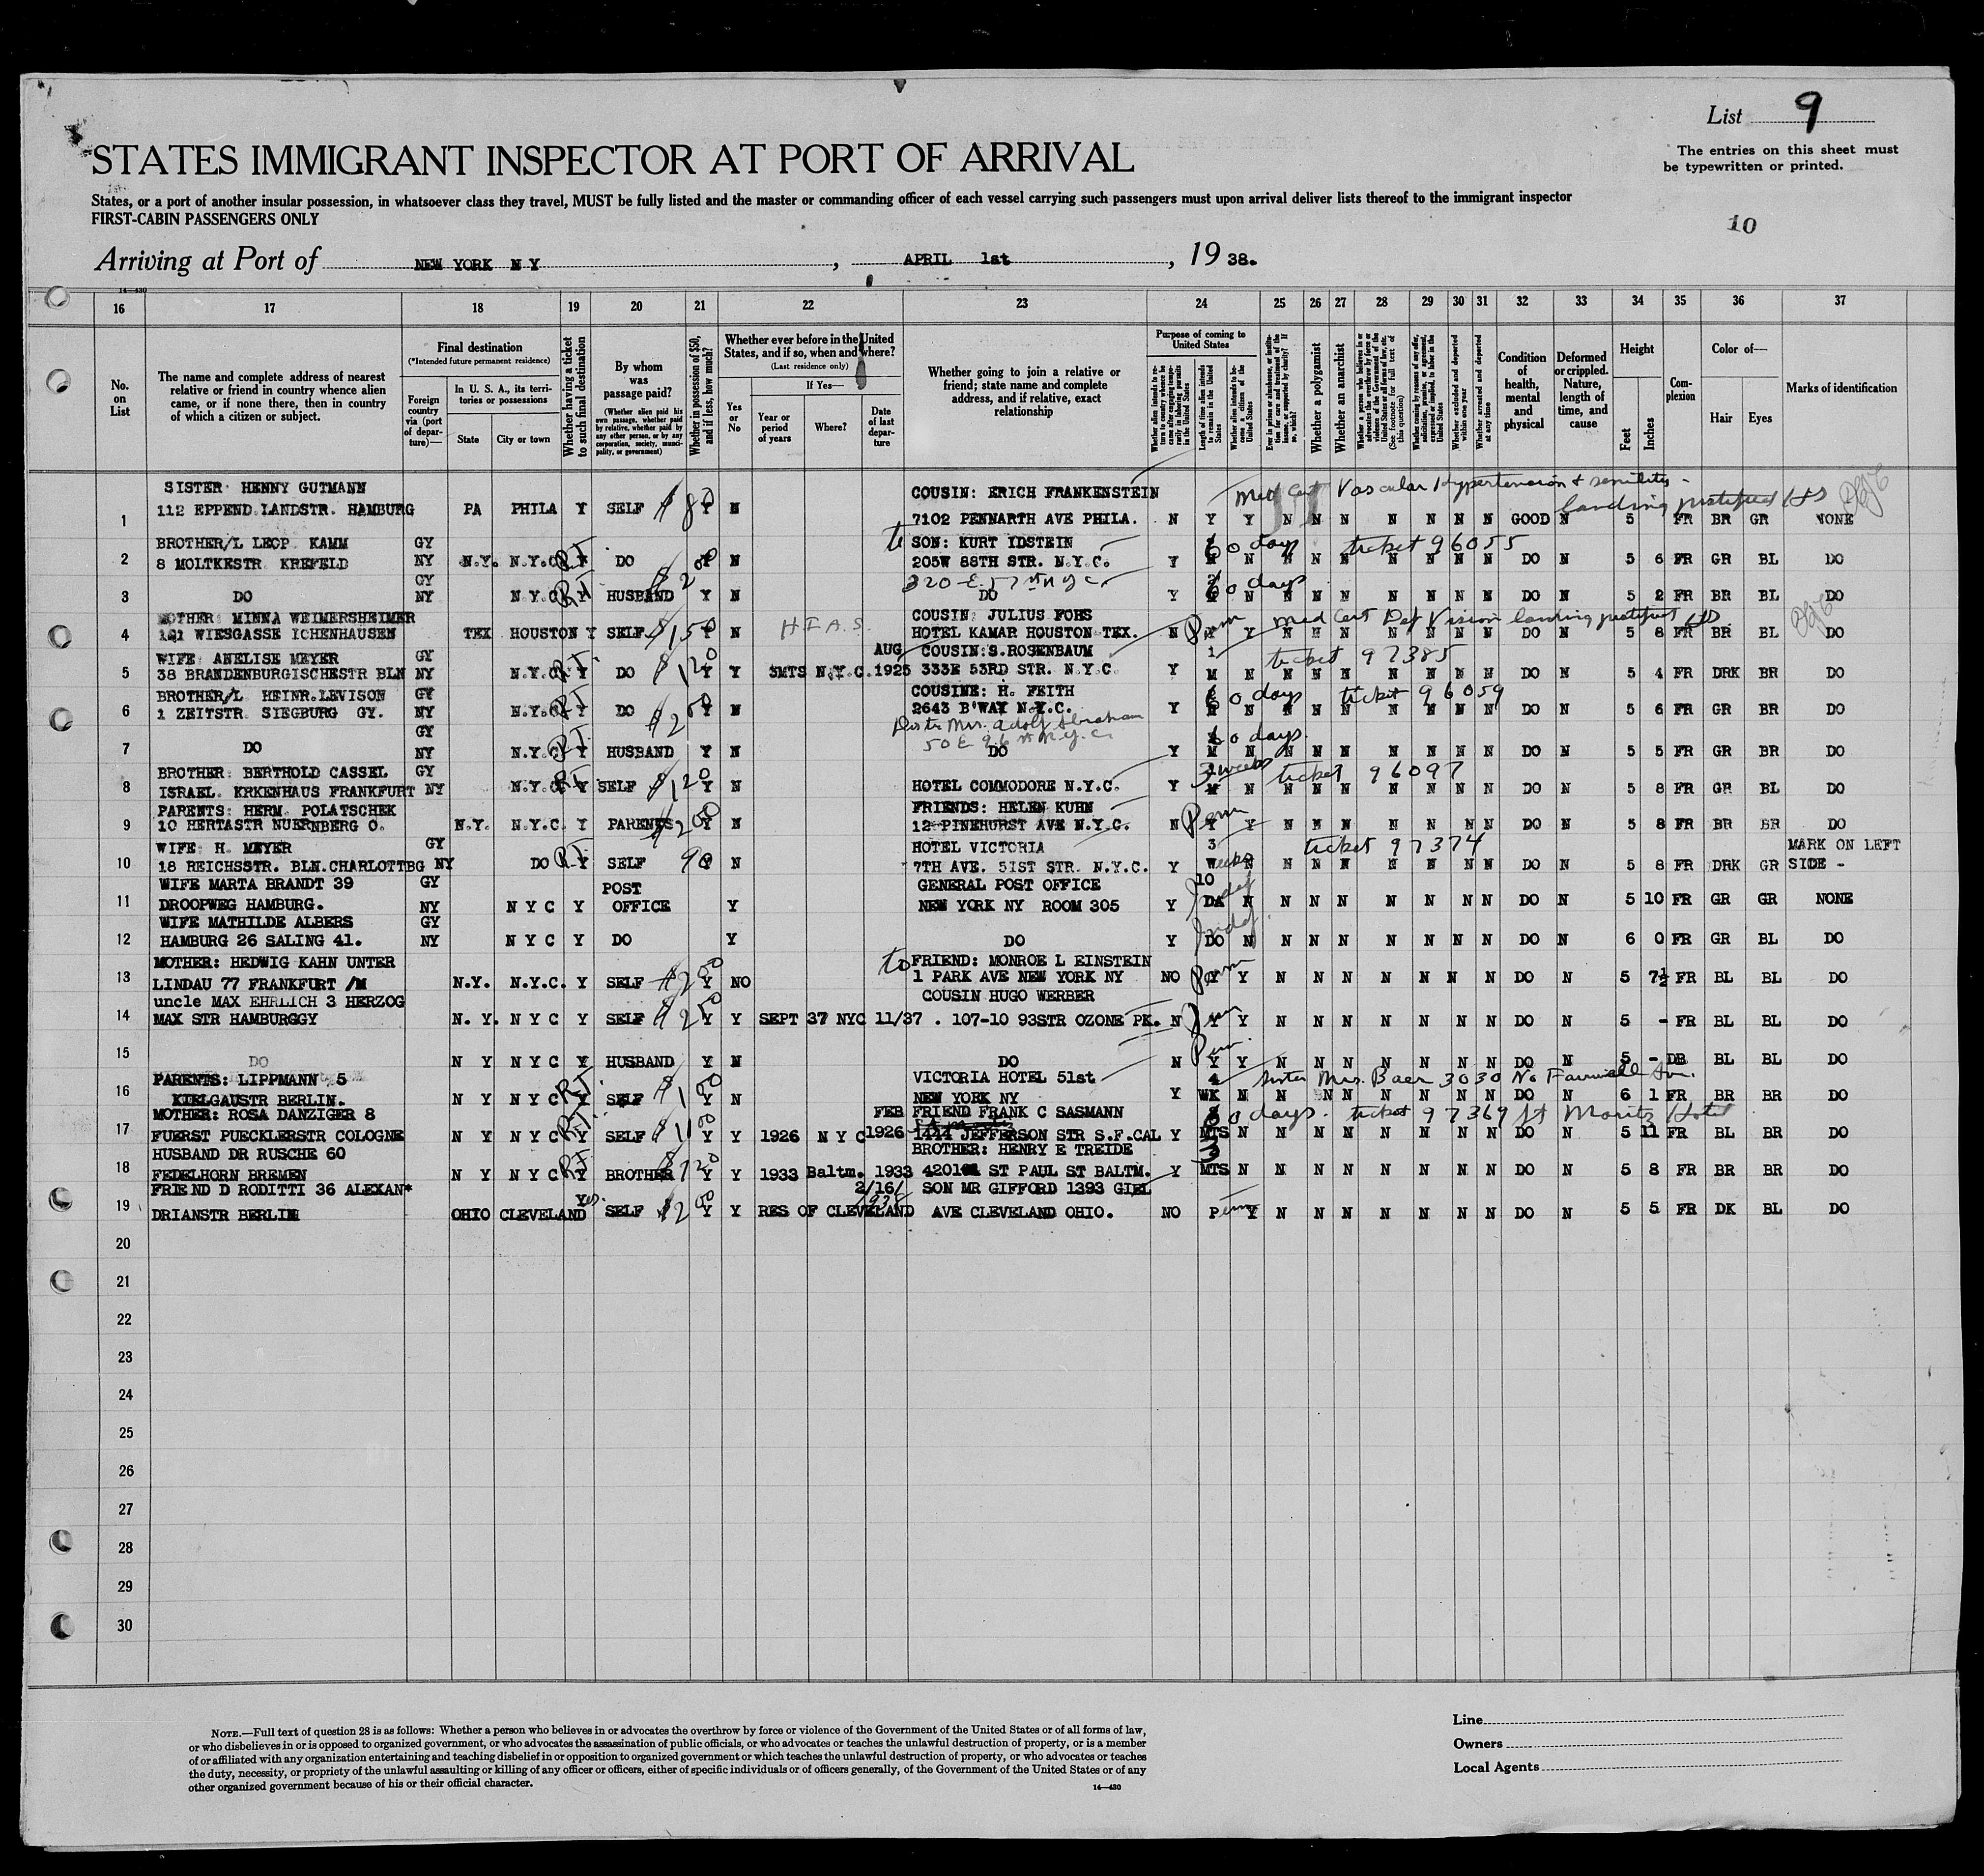 List 9
STATES IMMIGRANT INSPECTOR AT PORT OF ARRIVAL
The entries on this sheet must
be typewritten or printed.
States, or a port of another insular possession, in whatsoever class they travel, MUST be fully listed and the master or commanding officer of each vessel carrying such passengers must upon arrival deliver lists thereof to the immigrant inspector
FIRST-CABIN PASSENGERS ONLY
10
Arriving at Port of NEW YORK N Y, APRIL 1st, 19 38.
14—430
16 17 18 19 20 21 22 23 24 25 26 27 28 29 30 31 32 33 34 35 36 37
No. on List
The name and complete address of nearest relative or friend in country whence alien came, or if none there, then in country of which a citizen or subject.
Final destination
(*Intended future permanent residence)
Foreign country via (port of departure)—
In U. S. A., its territories or possessions
State
City or town
Whether having a ticket to such final destination
By whom was passage paid?
(Whether alien paid his own passage, whether paid by relative, whether paid by any other person, or by any corporation, society, municipality, or government)
Whether in possession of $50, and if less, how much?
Whether ever before in the United States, and if so, when and where?
(Last residence only)
Yes or No
If Yes—
Year or period of years
Where?
Date of last departure
Whether going to join a relative or friend; state name and complete address, and if relative, exact relationship
Purpose of coming to United States
Length of time alien intends to remain in the United States
Whether alien intends to become a citizen of the United States
Whether a polygamist
Whether an anarchist
(See footnote for full text of this question)
Whether excluded and deported within one year
Whether arrested and deported at any time
Condition of health, mental and physical
Deformed or crippled. Nature, length of time, and cause
Height
Feet
Inches
Complexion
Color of—
Hair
Eyes
Marks of identification
SISTER: HENNY GUTMANN COUSIN: ERICH FRANKENSTEIN Med Cert Vascular Hypertension & senility - landing
1 112 EPPEND.LANDSTR. HAMBURG PA PHILA Y SELF $80 Y N 7102 PENNARTH AVE PHILA. N Y Y N N N N N N N GOOD N 5 FR BR GR NONE
BROTHER/L LEOP. KAMM GY to SON: KURT IDSTEIN 60 days ticket 96055
2 8 MOLTKESTR. KREFELD NY N.Y. N.Y.C. RT Y DO Y N 205W 88TH STR. N.Y.C. Y N N N N N N N N DO N 5 6 FR GR BL DO
GY $200 320 E. 57 St N Y C. 60 days
3 DO NY N.Y.C. RT Y HUSBAND Y N DO Y N N N N N N N N DO N 5 2 FR BR BL DO
MOTHER: MINNA WEIMERSHEIMER COUSIN: JULIUS FOHS Perm Med Cert Def Vision landing
4 121 WIESGASSE ICHENHAUSEN TEX HOUSTON Y SELF $150 Y N H I A S HOTEL KAMAR HOUSTON TEX. N Y Y N N N N N N N DO N 5 8 FR BR BL DO
WIFE: ANELISE MEYER GY AUG COUSIN:S.ROSENBAUM 1 ticket 97385
5 38 BRANDENBURGISCHESTR BLN NY N.Y.C. RT Y DO $120 Y Y 3MTS N.Y.C. 1925 333E 53RD STR. N.Y.C. Y M N N N N N N N N DO N 5 4 FR DRK BR DO
BROTHER/L HEINR.LEVISON GY COUSINE: H. FEITH 60 days ticket 96059
6 1 ZEITSTR. SIEGBURG GY. NY N.Y.C. RT Y DO Y N 2643 B'WAY N.Y.C. Y N N N N N N N N DO N 5 6 FR GR BR DO
GY $200 Sister Mrs. Adolf Abraham 60 days.
50 E 96 St N.Y.C.
7 DO NY N.Y.C. RT Y HUSBAND Y N DO Y M N N N N N N N N DO N 5 5 FR GR BR DO
BROTHER: BERTHOLD CASSEL GY 3 weeks ticket 96097
8 ISRAEL. KRKENHAUS FRANKFURT NY N.Y.C. RT Y SELF $120 Y N HOTEL COMMODORE N.Y.C. Y M N N N N N N N N DO N 5 8 FR GR BL DO
PARENTS: HERM. POLATSCHEK FRIENDS: HELEN KUHN Perm
9 10 HERTASTR NUERNBERG O. N.Y. N.Y.C. Y PARENTS $200 Y N 12 PINEHURST AVE N.Y.C. N Y Y N N N N N N N DO N 5 8 FR BR BR DO
WIFE: H. MEYER GY HOTEL VICTORIA 3 ticket 97374 MARK ON LEFT
10 18 REICHSSTR. BLN.CHARLOTTBG NY DO RT Y SELF 90 N 7TH AVE. 51ST STR. N.Y.C. Y Weeks N N N N N N N N DO N 5 8 FR DRK GR SIDE -
WIFE MARTA BRANDT 39 GY POST GENERAL POST OFFICE 10
11 DROOPWEG HAMBURG. NY N Y C Y OFFICE Y NEW YORK NY ROOM 305 Y DA N N N N N N N N DO N 5 10 FR GR GR NONE
WIFE MATHILDE ALBERS GY Indef.
12 HAMBURG 26 SALING 41. NY N Y C Y DO Y DO Y DO N N N N N N N N DO N 6 0 FR GR BL DO
MOTHER: HEDWIG KAHN UNTER to FRIEND: MONROE L EINSTEIN
13 LINDAU 77 FRANKFURT /M N.Y. N.Y.C. Y SELF $200 Y NO 1 PARK AVE NEW YORK NY NO Perm Y Y N N N N N N N DO N 5 7½ FR BL BL DO
uncle MAX EHRLICH 3 HERZOG COUSIN HUGO WERBER
14 MAX STR HAMBURGGY N. Y. N Y C Y SELF $250 Y Y SEPT 37 NYC 11/37 . 107-10 93STR OZONE PK. N Y Y N N N N N N N DO N 5 - FR BL BL DO
15 DO N Y NYC Y HUSBAND Y N DO N Perm. Y Y N N N N N N N DO N 5 - DB BL BL DO
PARENTS: LIPPMANN 5 VICTORIA HOTEL 51st 4 Sister Mrs. Baer 3030 No
16 KIELGAUSTR BERLIN. N Y NYC RT Y SELF $100 Y N NEW YORK NY Y WK N N N N N N N N DO N 6 1 FR BR BR DO
MOTHER: ROSA DANZIGER 8 FEB FRIEND FRANK C SASMANN 60 days. ticket 97369 St Moritz Hotel
17 FUERST PUECKLERSTR COLOGNE N Y NYC RT Y SELF $1100 Y Y 1926 N Y C 1926 1424 JEFFERSON STR S.F.CAL Y MTS N N N N N N N N DO N 5 11 FR BL BR DO
HUSBAND DR RUSCHE 60 BROTHER: HENRY E TREIDE 3
18 FEDELHORN BREMEN N Y N Y C RT Y BROTHER $120 Y Y 1933 Baltm. 1933 4201 ST PAUL ST BALTM. Y MTS N N N N N N N N DO N 5 8 FR BR BR DO
FRIEND D RODITTI 36 ALEXAN* Yes. 2/16/ SON MR GIFFORD 1393 GIEL
19 DRIANSTR BERLIN OHIO CLEVELAND SELF $200 Y Y RES OF CLEVELAND AVE CLEVELAND OHIO. NO Perm Y N N N N N N N DO N 5 5 FR DK BL DO
20
21
22
23
24
25
26
27
28
29
30
NOTE.—Full text of question 28 is as follows: Whether a person who believes in or advocates the overthrow by force or violence of the Government of the United States or of all forms of law,
or who disbelieves in or is opposed to organized government, or who advocates the assassination of public officials, or who advocates or teaches the unlawful destruction of property, or is a member
of or affiliated with any organization entertaining and teaching disbelief in or opposition to organized government or which teaches the unlawful destruction of property, or who advocates or teaches
the duty, necessity, or propriety of the unlawful assaulting or killing of any officer or officers, either of specific individuals or of officers generally, of the Government of the United States or of any
other organized government because of his or their official character.
14—430
Line
Owners
Local Agents